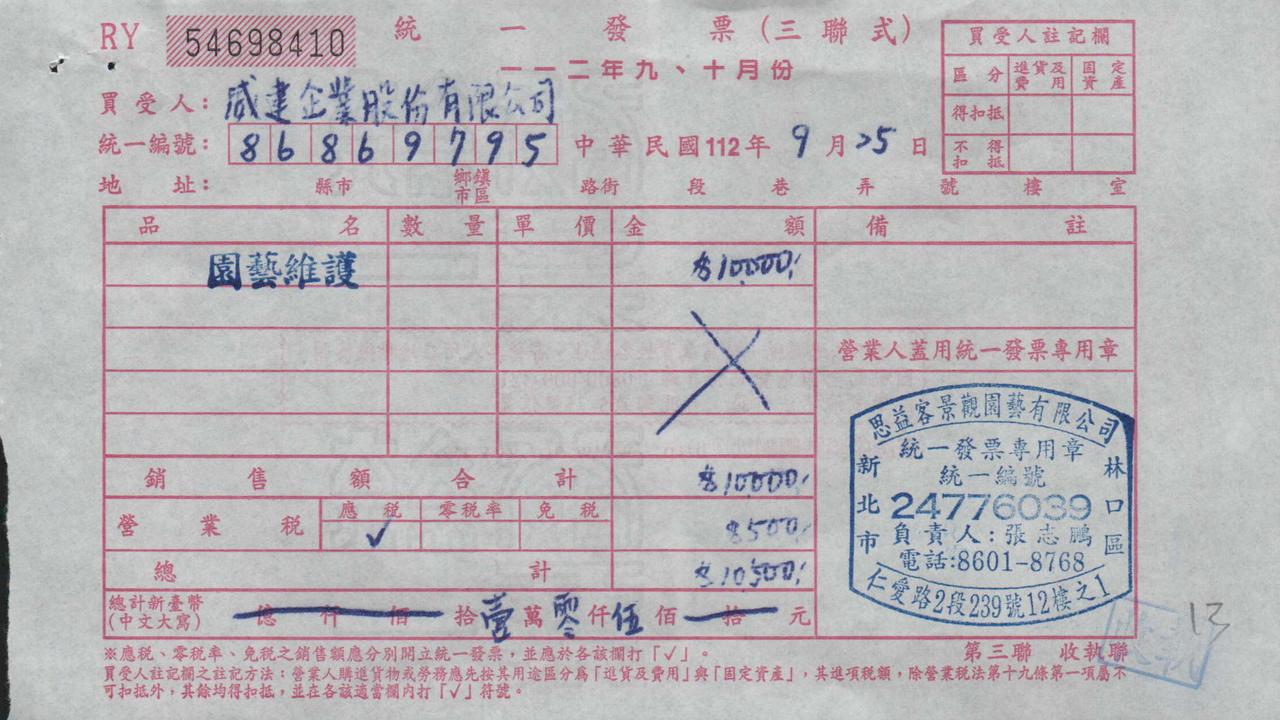 RY 54698410 統一發票(三聯式)
一一二年九、十月份
買受人註記欄
區分 進貨及費用 固定資產
得扣抵
不得扣抵
買受人: 威建企業股份有限公司
統一編號: 86869795 中華民國112年9月25日
地址: 縣市 鄉鎮市區 路街 段 巷 弄 號 樓 室
品名 數量 單價 金額 備註
園藝維護 $10,000.
營業人蓋用統一發票專用章
銷售額合計 $10,000.
營業稅 應稅 零稅率 免稅 $500.
✓
總計 $10,500.
總計新臺幣(中文大寫) 億 仟 佰 拾 壹 萬 零 仟 伍 佰 拾 元
思益客景觀園藝有限公司
統一發票專用章
統一編號
24776039
負責人:張志鵬
電話:8601-8768
新北市
林口區
仁愛路2段239號12樓之1
13
第三聯 收執聯
※應稅、零稅率、免稅之銷售額應分別開立統一發票,並應於各該欄打「✓」。
買受人註記欄之註記方法:營業人購進貨物或勞務應先按其用途區分為「進貨及費用」與「固定資產」,其進項稅額,除營業稅法第十九條第一項屬不
可扣抵外,其餘均得扣抵,並在各該適當欄內打「✓」符號。